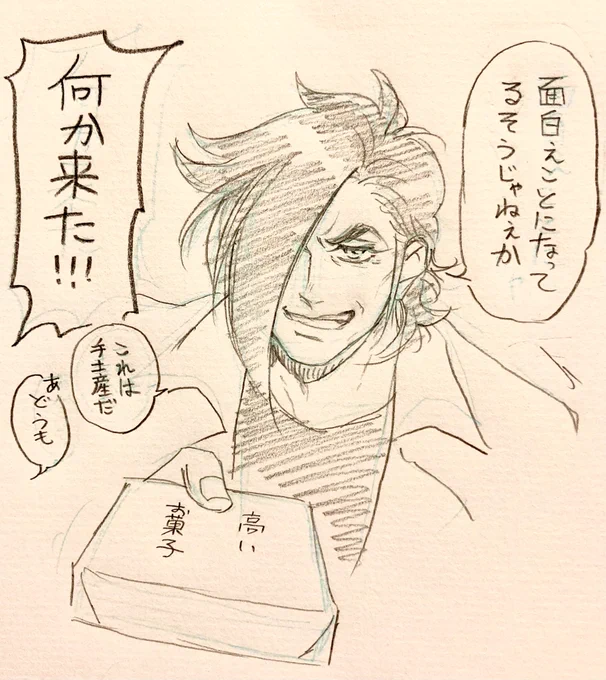 面白ぇことになって
るそうじゃねぇか
何か来た!!!
これは
手土産だ
あ、
どうも
高い
お菓子